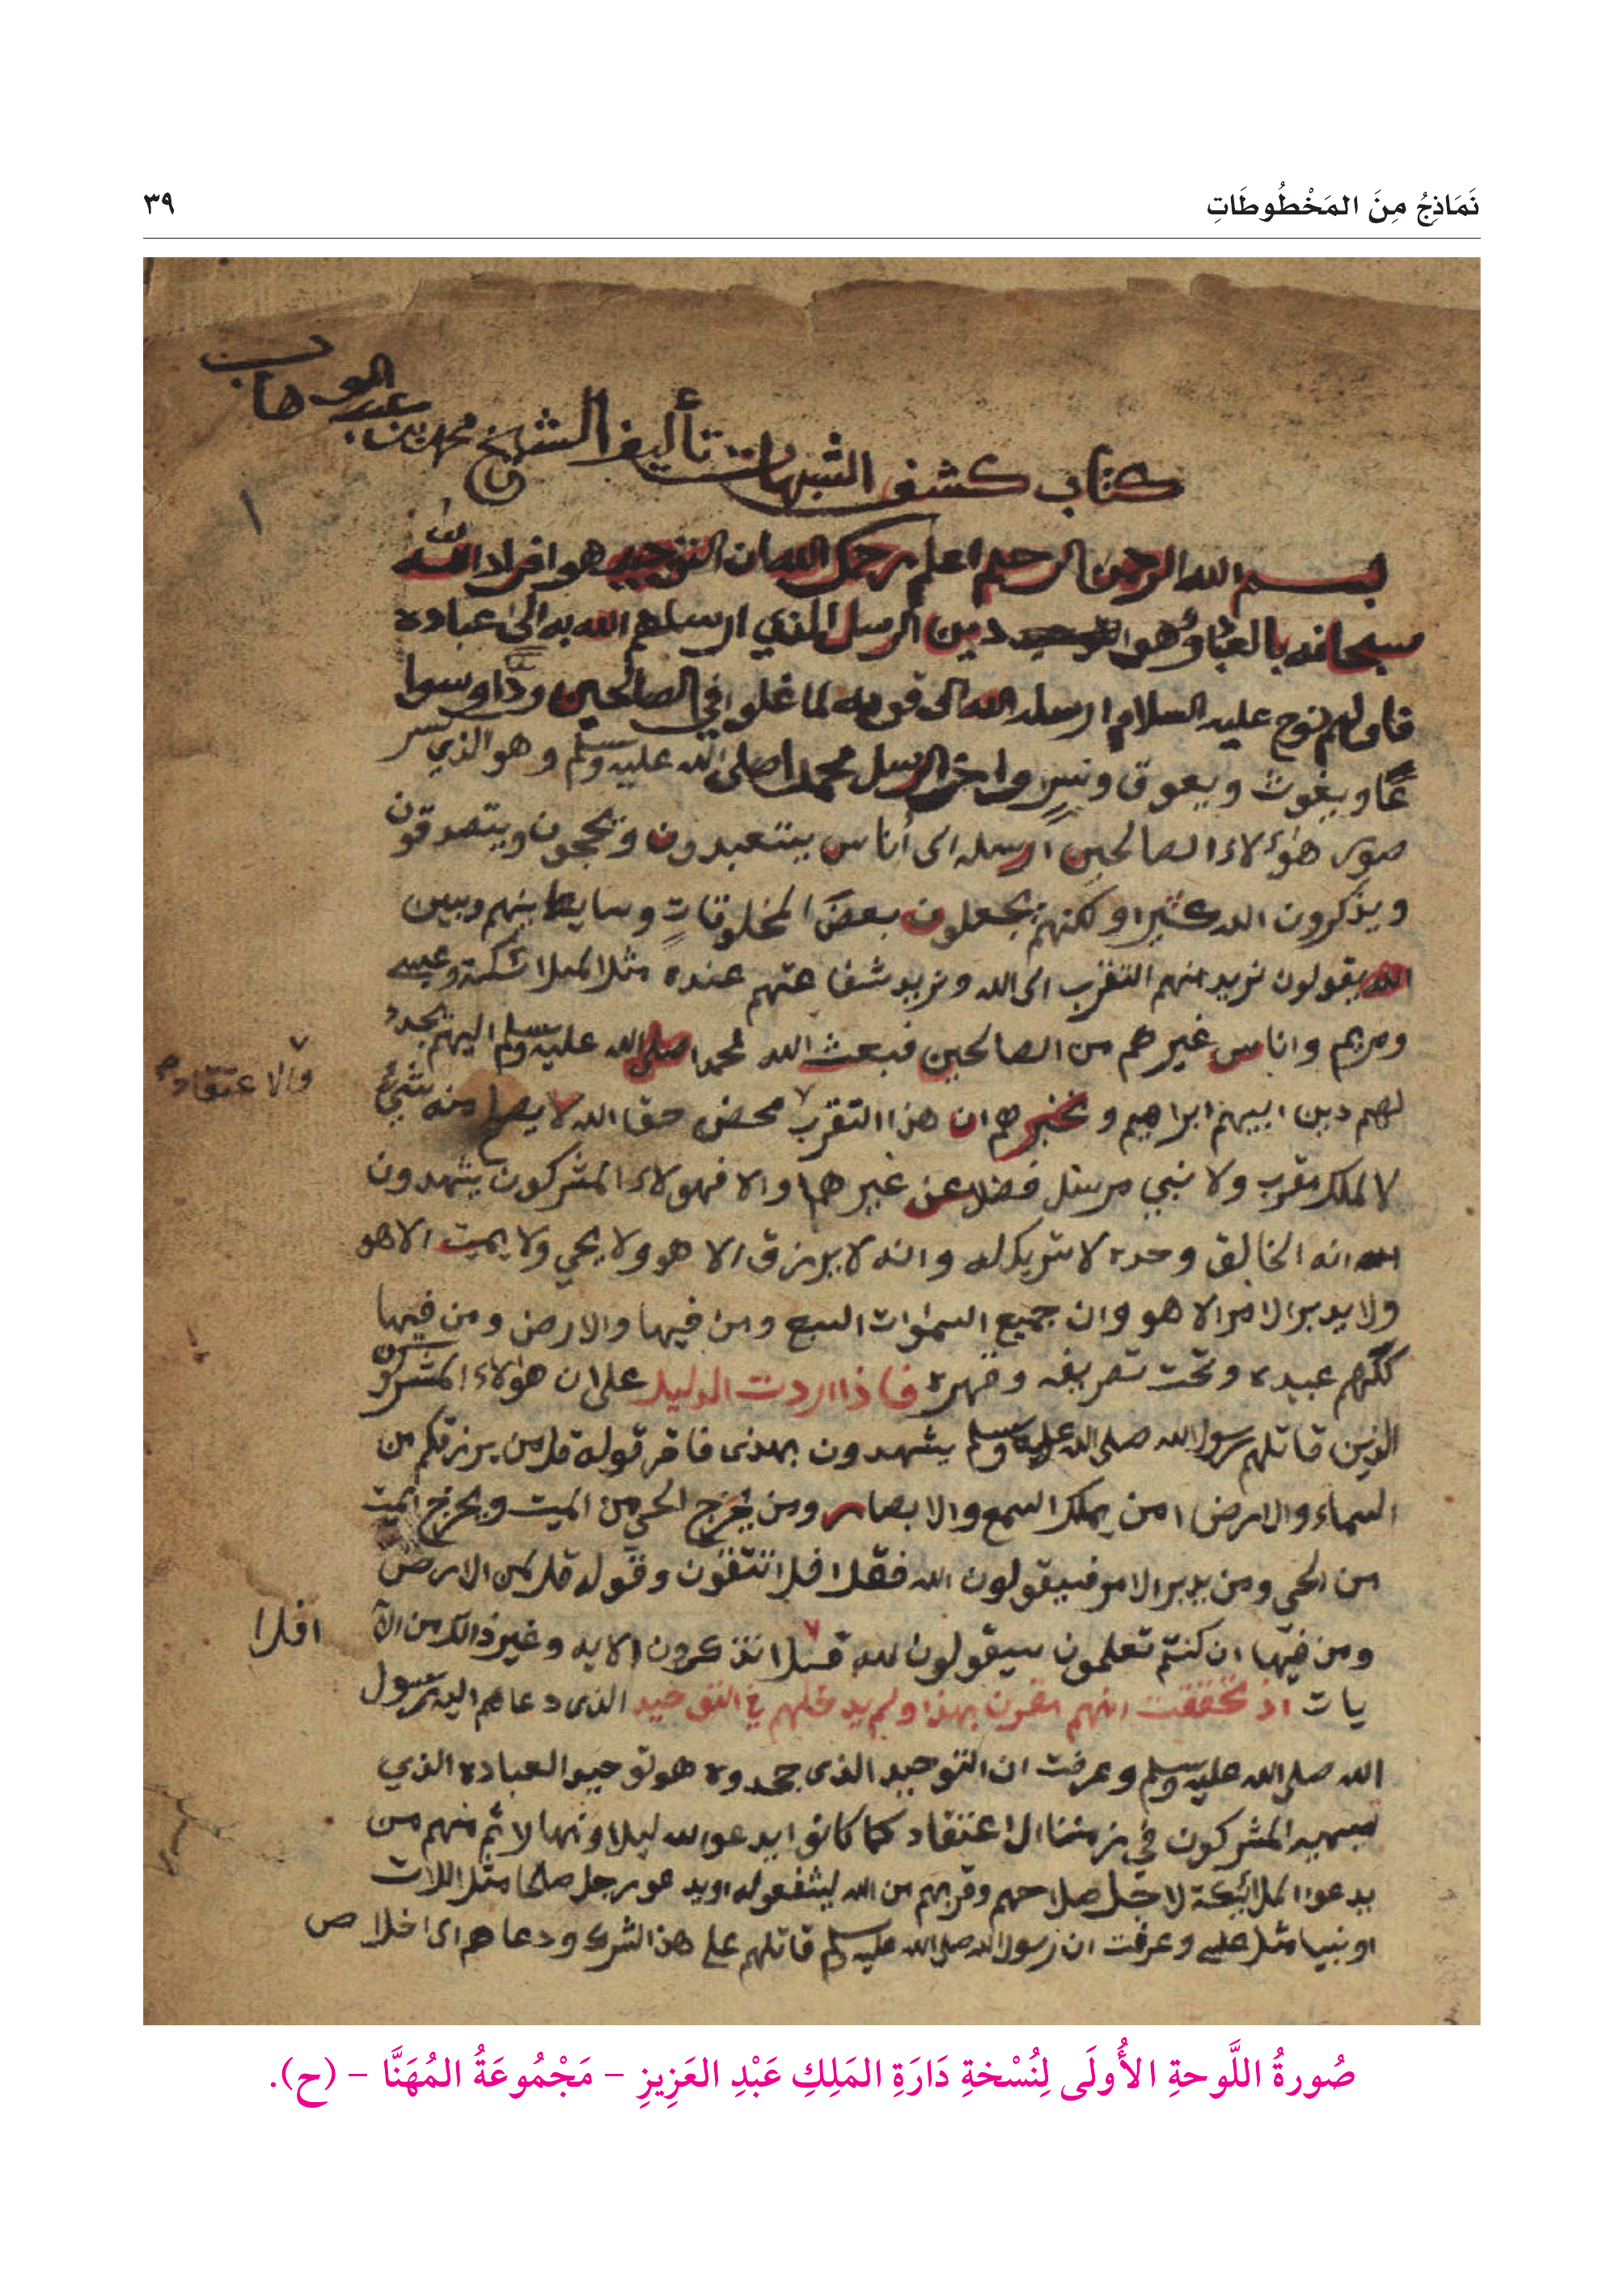 نَمَاذِجُ مِنَ المَخْطُوطَاتِ
٣٩
كتاب كشف الشبهات تأليف الشيخ محمد بن عبد الوهاب
١
بسم الله الرحمن الرحيم اعلم رحمك الله ان التوحيد هو افراد الله
سبحانه بالعبادة وهو دين الرسل الذي ارسلهم الله به الى عباده
فاولهم نوح عليه السلام ارسله الله الى قومه لما غلوا في الصالحين ودّا وسوا
عًا ويغوث ويعوق ونسرٍ واخر الرسل محمد اصلى الله عليه وسلم وهو الذي كسر
صور هؤلاء الصالحين ارسله الى أناس يتعبدون ويحجون ويتصدقون
ويذكرون الله كثيرا ولكنهم يجعلون بعضَ المخلوقاتِ وسايط بينهم وبين
الله يقولون نريد منهم التقرب الى الله ونريد شفاعتهم عنده مثل الملائكة وعيسى
ومريم واناس غيرهم من الصالحين فبعث الله محمدا صلى الله عليه وسلم اليهم يجدد
لهم دين ابيهم ابراهيم ويخبرهم ان هذا التقرب محض حق الله لا يصلح منه شيئ
والاعتقاد
لا لملك مقرب ولا نبي مرسل فضلا عن غيرهما والا فهولاء المشركون يشهدون
انه الخالق وحده لا شريك له وانه لا يرزق الا هو ولا يحي ولا يميت الا هو
ولا يدبر الامر الا هو وان جميع السمٰوات السبع ومن فيها والارض ومن فيها
كلهم عبيده وتحت تصريفه وقهره فاذا اردت الدليل على ان هؤلاء المشركون
الذين قاتلهم رسول الله صلى الله عليه وسلم يشهدون بهذى فاقر قوله قل من يرزقكم من
السماء والارض امن يملك السمع والابصار ومن يخرج الحي من الميت ويخرج الميت
من الحي ومن يدبر الامر فسيقولون الله فقل افلا تتقون وقوله قل لمن الارض
ومن فيها ان كنتم تعلمون سيقولون لله قل تذكرون الايه وغير ذالك من الآ
افلا
يات اذ تحققت انهم مقرون بهذا ولم يدخلهم في التوحيد الذى دعاهم اليه رسول
الله صلى الله عليه وسلم وعرفت ان التوحيد الذى جحدوه هو توحيد العباده الذي
يسميه المشركون في زمننا الاعتقاد كما كانوا يدعو الله ليلا ونهارا ثم منهم من
يدعوا الملائكة لاجل صلاحهم وقربهم من الله ليشفعو له او يدعو رجل صالحا مثل اللات
او نبيا مثل عيسى وعرفت ان رسول الله صلى الله عليه وسلم قاتلهم على هذ الشرك ودعاهم الى اخلاص
صُورةُ اللَّوحةِ الأُولَى لِنُسْخةِ دَارَةِ المَلِكِ عَبْدِ العَزِيزِ – مَجْمُوعَةُ المُهَنَّا – (ح).